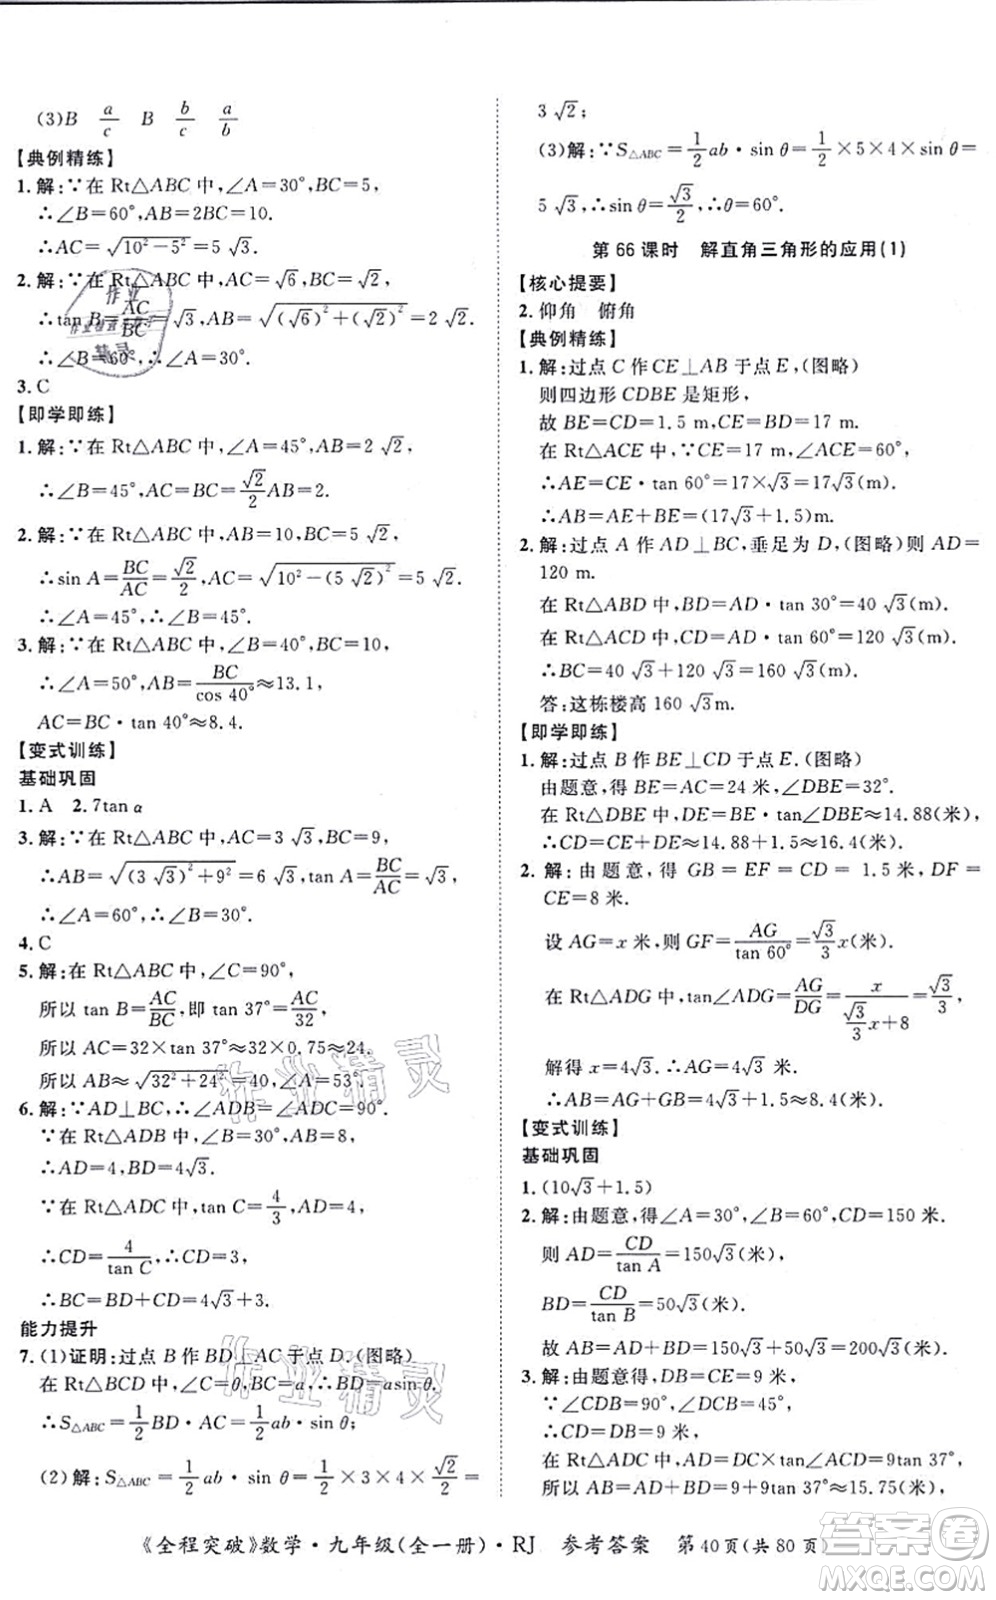 (3)B a/c B b/c a/b
【典例精练】
1.解:∵在 Rt△ABC 中,∠A=30°,BC=5,
∴∠B=60°,AB=2BC=10.
∴AC=√(10²-5²)=5√3.
2.解:∵在 Rt△ABC 中,AC=√6,BC=√2,
∴tan B=AC/BC=√3,AB=√((√6)²+(√2)²)=2√2.
∴∠B=60°,∴∠A=30°.
3.C
【即学即练】
1.解:∵在 Rt△ABC 中,∠A=45°,AB=2√2,
∴∠B=45°,AC=BC=√2/2AB=2.
2.解:∵在 Rt△ABC 中,AB=10,BC=5√2,
∴sin A=BC/AC=√2/2,AC=√(10²-(5√2)²)=5√2.
∴∠A=45°,∴∠B=45°.
3.解:∵在 Rt△ABC 中,∠B=40°,BC=10,
∴∠A=50°,AB=BC/cos 40°≈13.1,
AC=BC·tan 40°≈8.4.
【变式训练】
基础巩固
1.A 2.7tan α
3.解:∵在 Rt△ABC 中,AC=3√3,BC=9,
∴AB=√((3√3)²+9²)=6√3,tan A=BC/AC=√3,
∴∠A=60°,∴∠B=30°.
4.C
5.解:在 Rt△ABC 中,∠C=90°,
所以 tan B=AC/BC,即 tan 37°=AC/32,
所以 AC=32×tan 37°≈32×0.75=24.
所以 AB≈√(32²+24²)=40,∠A=53°.
6.解:∵AD⊥BC,∴∠ADB=∠ADC=90°.
∵在 Rt△ADB 中,∠B=30°,AB=8,
∴AD=4,BD=4√3.
∵在 Rt△ADC 中,tan C=4/3,AD=4,
∴CD=4/tan C,∴CD=3,
∴BC=BD+CD=4√3+3.
能力提升
7.(1)证明:过点 B 作 BD⊥AC 于点 D.(图略)
在 Rt△BCD 中,∠C=θ,BC=a,∴BD=asin θ.
∴S△ABC=1/2BD·AC=1/2ab·sin θ;
(2)解:S△ABC=1/2ab·sin θ=1/2×3×4×√2/2=
3√2;
(3)解:∵S△ABC=1/2ab·sin θ=1/2×5×4×sin θ=
5√3,∴sin θ=√3/2,∴θ=60°.
第 66 课时 解直角三角形的应用(1)
【核心提要】
2.仰角 俯角
【典例精练】
1.解:过点 C 作 CE⊥AB 于点 E.(图略)
则四边形 CDBE 是矩形,
故 BE=CD=1.5 m,CE=BD=17 m.
在 Rt△ACE 中,∵∠ACE=60°,
∴AE=CE·tan 60°=17×√3=17√3(m).
∴AB=AE+BE=(17√3+1.5)m.
2.解:过点 A 作 AD⊥BC,垂足为 D,(图略)则 AD=
120 m.
在 Rt△ABD 中,BD=AD·tan 30°=40√3(m).
在 Rt△ACD 中,CD=AD·tan 60°=120√3(m).
∴BC=40√3+120√3=160√3(m).
答:这栋楼高 160√3m.
【即学即练】
1.解:过点 B 作 BE⊥CD 于点 E.(图略)
由题意,得 BE=AC=24 米,∠DBE=32°.
在 Rt△DBE 中,DE=BE·tan∠DBE≈14.88(米).
∴CD=CE+DE≈14.88+1.5≈16.4(米).
2.解:由题意,得 GB=EF=CD=1.5 米,DF=
CE=8 米.
设 AG=x 米,则 GF=AG/tan 60°=√3/3x(米).
在 Rt△ADG 中,tan∠ADG=AG/DG=x/(√3/3x+8)=√3/3,
解得 x=4√3.∴AG=4√3(米).
∴AB=AG+GB=4√3+1.5≈8.4(米).
【变式训练】
基础巩固
1.(10√3+1.5)
2.解:由题意,得∠A=30°,∠B=60°,CD=150 米.
则 AD=CD/tan A=150√3(米),
BD=CD/tan B=50√3(米).
故 AB=AD+BD=150√3+50√3=200√3(米).
3.解:由题意,得 BD=9 米.
∵∠CDB=90°,∠BCD=45°,
∴CD=DB=9 米,
在 Rt△ADC 中,∵tan∠ACD=AD/CD,
∴AD=DC×tan∠ACD=9×tan 37°.
∴AB=AD+BD≈9+9×0.75≈15.75(米).
《全程突破》数学·九年级(全一册)·RJ 参考答案 第40页(共 80 页)
作业精灵
作业精灵
MXQE.COM